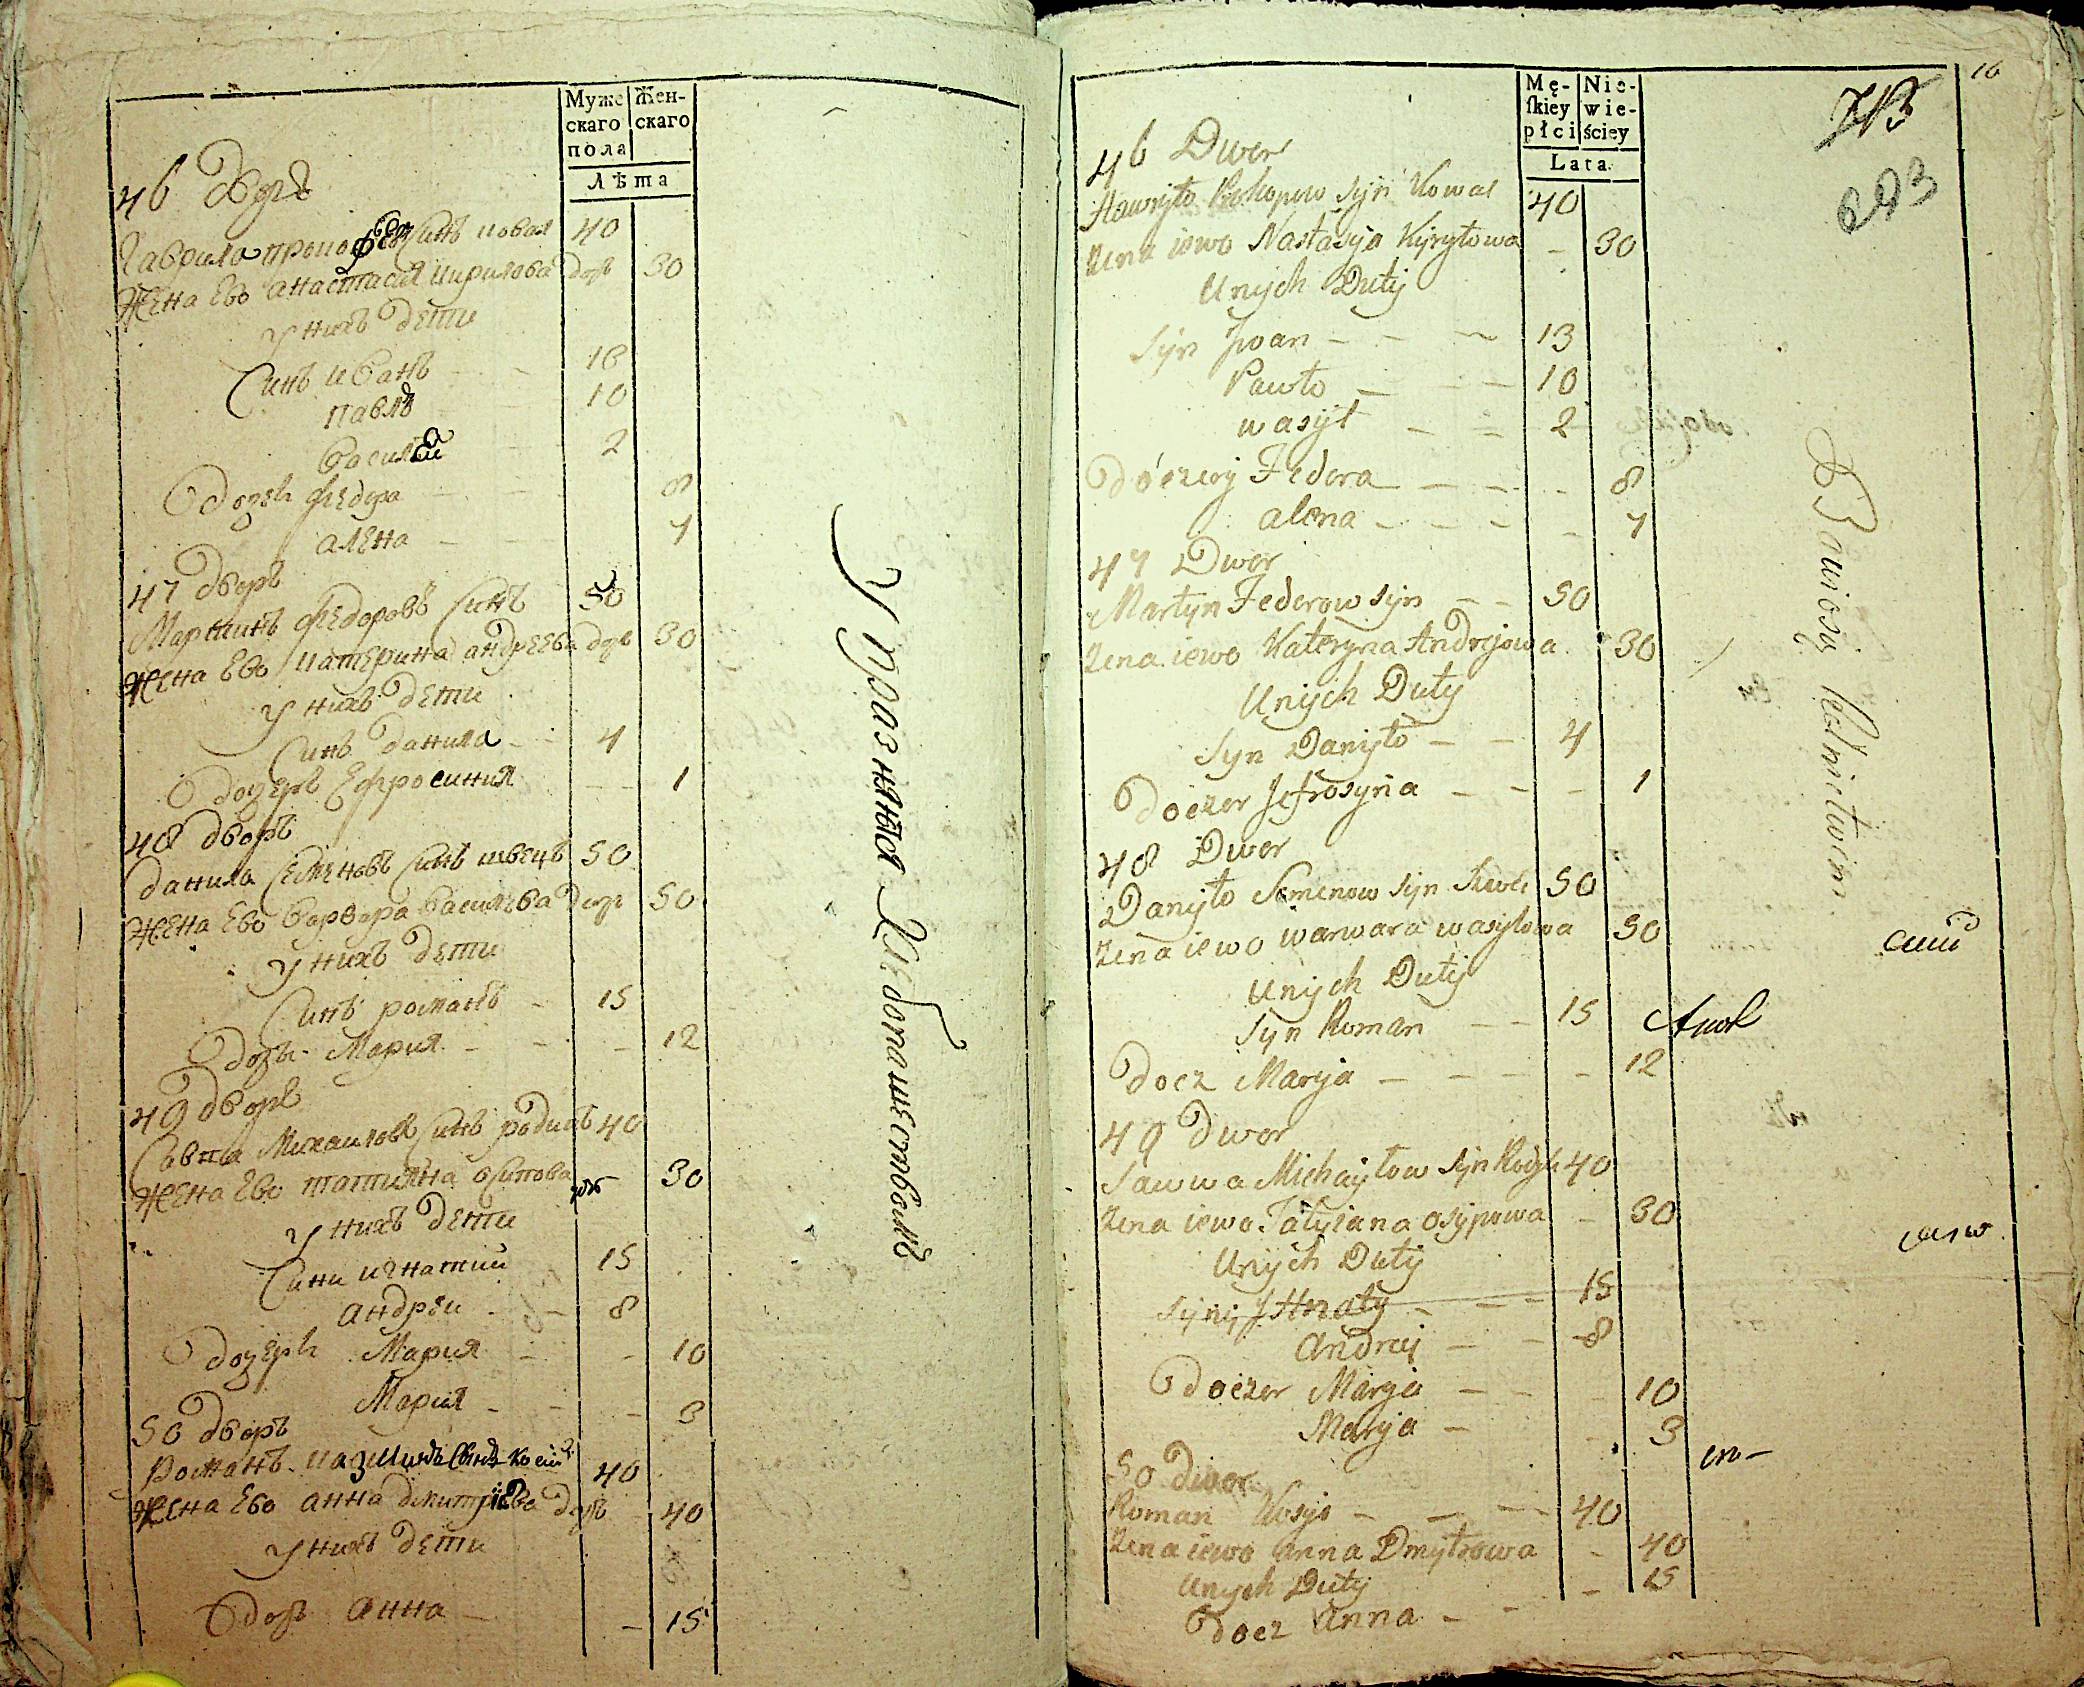 Муже
скаго
пола
Жен-
скаго
Лѣта
46 дворъ
Гаврила Прокофьевъ Синъ коваль 40
Жена Ево анастасия кирилова дочь 30
У нихъ дети
Синъ иванъ - - 13
павлъ - - 10
василий - - 2
дочь федора - - 8
алена - - 7
47 дворъ
Мартинъ федоровъ Синъ 50
Жена Ево катерина андреева дочь 30
У нихъ дети
Синъ данила - - 4
дочерь Ефросиния - - 1
48 дворъ
данила Семеновъ Синъ швецъ 50
Жена Ево варвара василева дочь 50
У нихъ дети
Синъ романъ - 15
дочь Мария - - - 12
49 дворъ
Савва Михаиловъ Синъ 40
Жена Ево татияна осипова дочь 30
У нихъ дети
Сини игнатий 15
андрей - - 8
дочерь Мария - - 10
Мария - - - 3
50 дворъ
Романъ Синъ 40
Жена Ево анна дмитриева дочь 40
У нихъ дети
дочь анна - - 15
У празнятся
Mę-
skiey
płci
Nie-
wie-
ściey
Lata
16
293
46 Dwor
Hawryło Prokopow Syn Kowal 40
Zena iewo Nastasyja Kyryłowa - 30
Unych Dity
Syn Jwan - - - 13
Pawło - - - 10
wasyl - - 2
doczery Fedora - - - - 8
alena - - - - 7
47 Dwor
Martyn Federow syn - - 50
Zena iewo Kateryna Andrejowa 30
Unych Dity
Syn Danyło - - 4
doczer Jefrosynia - - - - 1
48 Dwor
Danyło Semenow Syn 50
Zena iewo warwara wasylowa 50
Unych Dity
Syn Roman - - 15
docz Maryja - - - - - 12
49 Dwor
Sawwa Michayłow Syn 40
Zena iewo Tatyiana osypowa - 30
Unych Dity
Syny Jhnaty - - - 15
Andrej - - 8
doczer Maryja - - - 10
Maryja - - 3
50 Dwor
Roman - - - 40
Zena iewo Anna Dmytrowa - 40
Unych Dity - 15
docz Anna - -